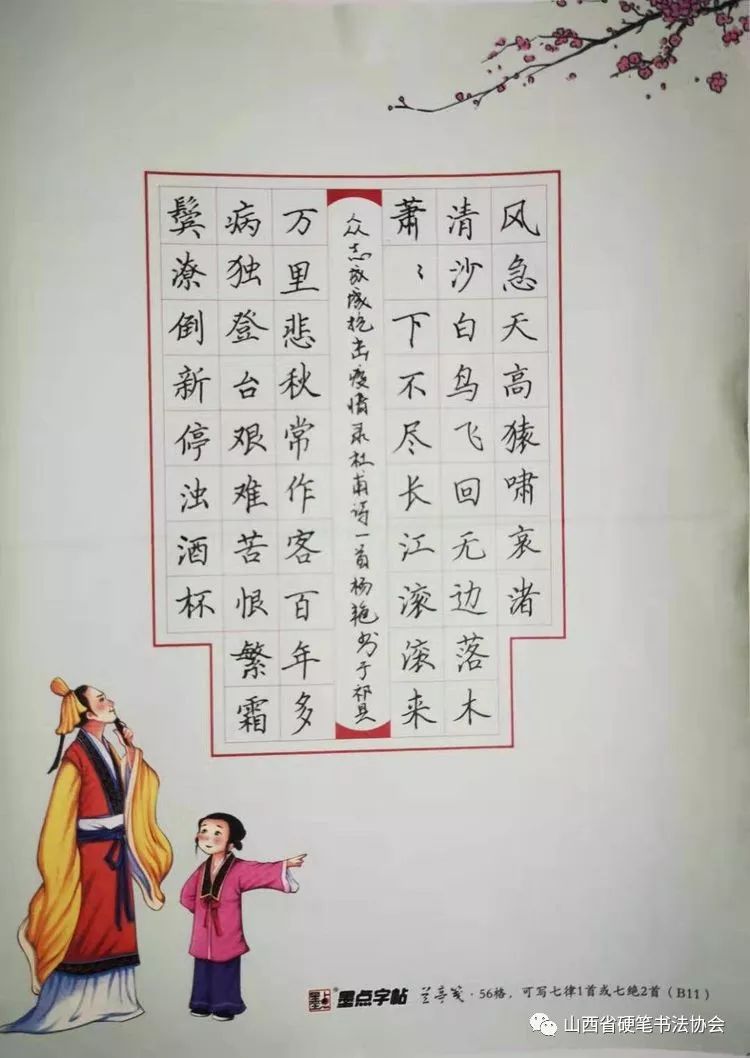 风急天高猿啸哀渚
清沙白鸟飞回无边落木
萧〻下不尽长江滚滚来
众志成城抗击疫情录杜甫诗一首杨艳书于祁县
万里悲秋常作客百年多
病独登台艰难苦恨繁霜
鬓潦倒新停浊酒杯
墨点字帖 兰亭笺·56格，可写七律1首或七绝2首（B11）
山西省硬笔书法协会